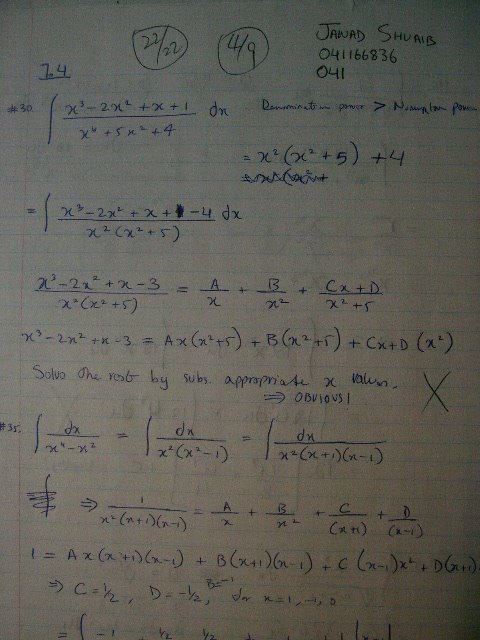 22/22 4/9 JAWAD SHUAIB
041166836
041
7.4
#30. ∫ (x³ - 2x² + x + 1)/(x⁴ + 5x² + 4) dx Denominator power > Numerator power
= x²(x² + 5) + 4
= ∫ (x³ - 2x² + x + - 4)/(x²(x² + 5)) dx
(x³ - 2x² + x - 3)/(x²(x² + 5)) = A/x + B/x² + (Cx + D)/(x² + 5)
x³ - 2x² + x - 3 = Ax(x² + 5) + B(x² + 5) + Cx + D (x²)
Solve the rest by subs. appropriate x values.
⇒ OBVIOUS! X
#35. ∫ dx/(x⁴ - x²) = ∫ dx/(x²(x² - 1)) = ∫ dx/(x²(x+1)(x-1))
⇒ 1/(x²(x+1)(x-1)) = A/x + B/x² + C/(x+1) + D/(x-1)
1 = Ax(x+1)(x-1) + B(x+1)(x-1) + C(x-1)x² + D(x+1)
⇒ C = ½, D = -½, B = -1 for x = 1, -1, 0
= ∫ -1 ½ ½